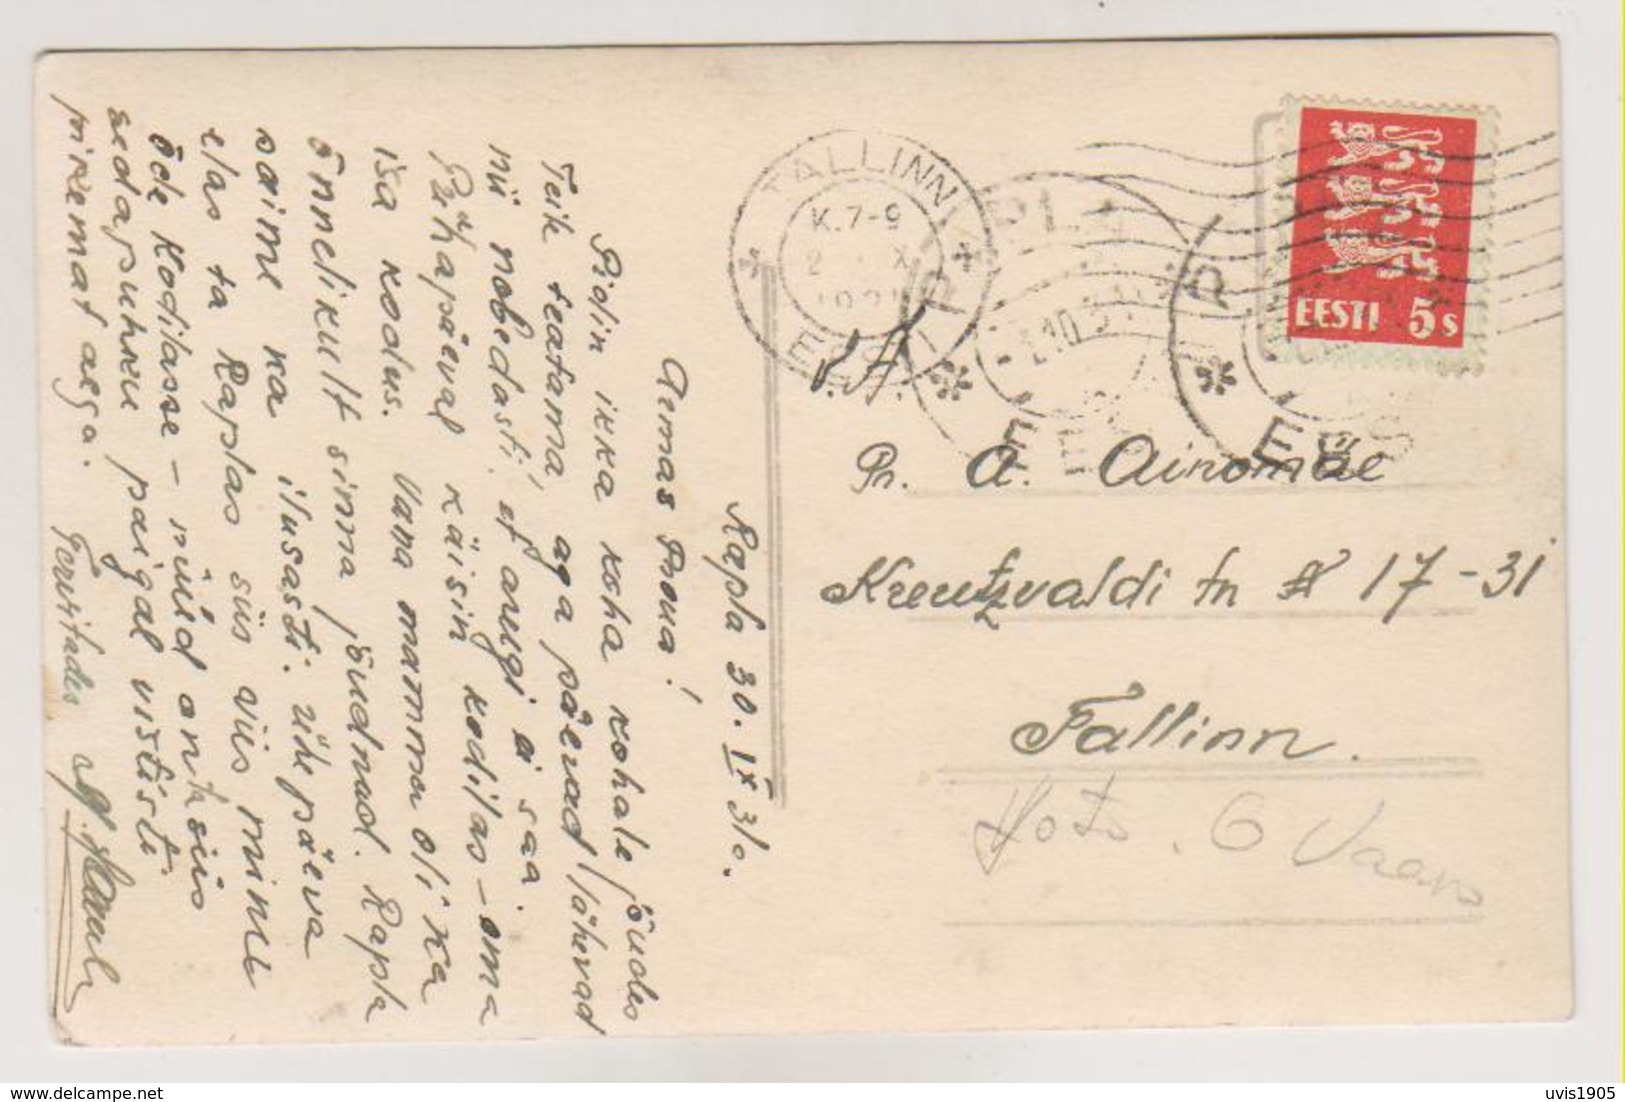 Rapla 30. IX 31.
Armas Proua!
Pidin ikka koha kohale jõudes
Teile teatama, aga päevad lähevad
nii nobedasti, et arugi ei saa.
Pühapäeval käisin kodilas – oma
isa kodus. Vana mamma oli ka
õnnelikult sinna jõudnud. Rapla
saime ka ilusasti. ühe päeva
elas ta Raplas siis viis minu
õde Kodilasse – nüüd on ta siis
sedapuhku paigal vististi
pikemat aega.
Tervitades
TALLINN
K. 7-9
EESTI
RAPLA
EESTI
EESTI 5 s
Pr. A. Ainomäe
Kreutzvaldi tn 17-31
Tallinn.
Foto. G Vaars
uvis1905